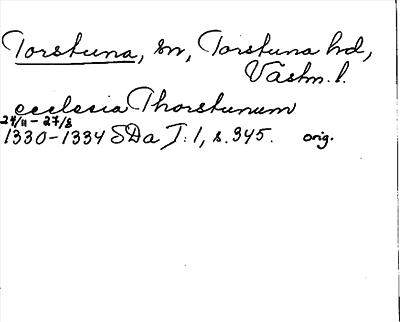 Torstuna, sn, Torstuna hd,
Västm. l.
ecclesia Thorstunum
24/11 - 27/8
1330-1334 SDa I:1, s. 345. orig.